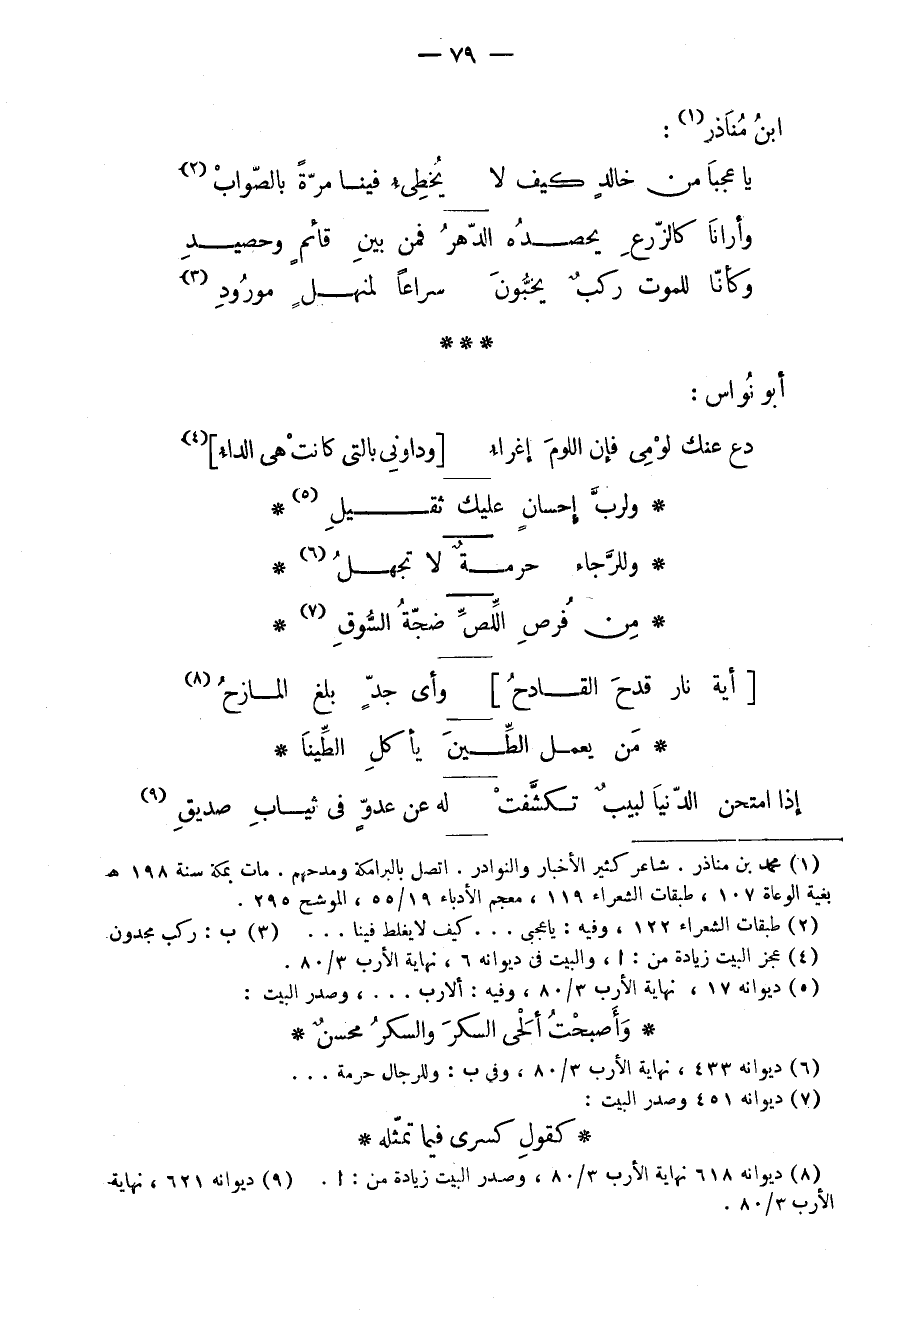 — ٧٩ —
ابنُ مُنَاذر(١) :
يا عجبَا من خالدٍ كيف لا يُخطِىء فينا مرّةً بالصّوابْ (٢)
وأرانَا كالزّرعِ يحصدُه الدّهرُ فمن بينِ قائمٍ وحصيدِ
وكأنّا للموت ركبٌ يخبُّونَ سراعاً لمنهلٍ مورُودِ (٣)
***
أبو نُواس :
دع عنك لوْمِى فإن اللومَ إغراء [وداوِنى بالتى كانتْ هى الداء](٤)
* ولربَّ إحسانٍ عليك ثقيلِ (٥) *
* وللرَّجاء حرمةٌ لا تجهلُ (٦) *
* مِن فُرصِ اللِّصِّ ضجّةُ السُّوقِ (٧) *
[ أية نار قدحَ القادحُ ] وأى جدٍّ بلغ المازحُ (٨)
* مَن يعمل الطِّينَ يأكلِ الطِّينَا *
إذا امتحن الدّنيَا لبيبٌ تكشَّفتْ له عن عدوٍّ فى ثيابِ صديقِ (٩)
(١) محمد بن مناذر . شاعر كثير الأخبار والنوادر . اتصل بالبرامكة ومدحهم . مات بمكة سنة ١٩٨ هـ
بغية الوعاة ١٠٧ ، طبقات الشعراء ١١٩ ، معجم الأدباء ٥٥/١٩ ، الموشح ٢٩٥ .
(٢) طبقات الشعراء ١٢٢ ، وفيه : ياعجبى . . . كيف لايغلط فينا . . . (٣) ب : ركب مجدون
(٤) عجز البيت زيادة من : ا ، والبيت فى ديوانه ٦ ، نهاية الأرب ٨٠/٣ .
(٥) ديوانه ١٧ ، نهاية الأرب ٨٠/٣ ، وفيه : ألارب . . . ، وصدر البيت :
* وَأَصبحْتُ ألحَى السكرَ والسكرُ محسنٌ *
(٦) ديوانه ٤٣٣ ، نهاية الأرب ٨٠/٣ ، وفى ب : وللرجال حرمة . . .
(٧) ديوانه ٤٥١ وصدر البيت :
* كقولِ كسرى فيما تمثّله *
(٨) ديوانه ٦١٨ نهاية الأرب ٨٠/٣ ، وصدر البيت زيادة من : ا . (٩) ديوانه ٦٢١ ، نهاية
الأرب ٨٠/٣ .